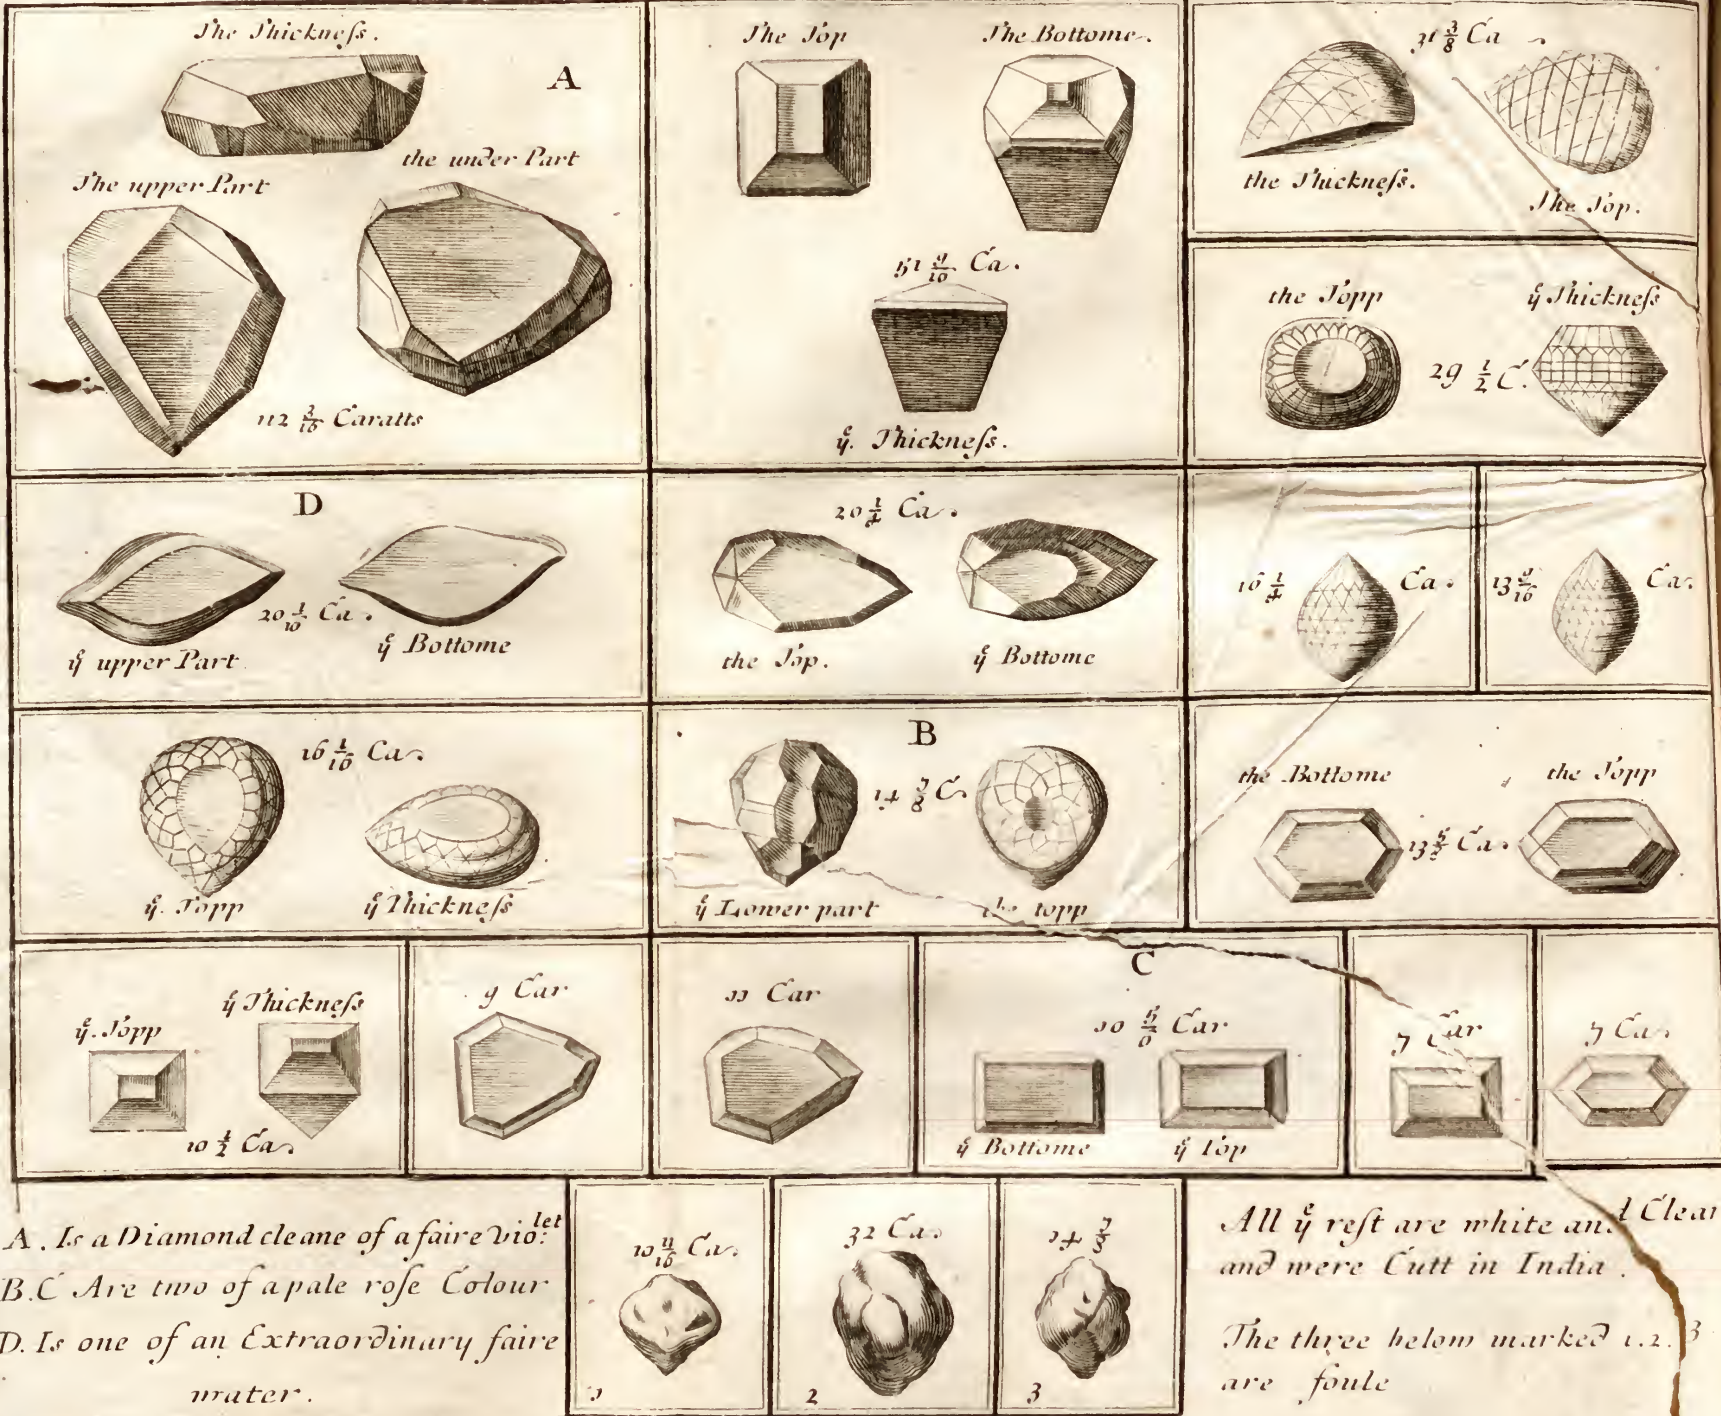 The Thickneſs.
A
The upper Part
the under Part
112 3/16 Caratts
The Top
The Bottome.
51 9/16 Ca.
yͤ. Thickneſs.
31 3/8 Ca
the Thickneſs.
The Top.
the Topp
yͤ Thickneſs
29 1/2 C.
D
20 1/10 Ca.
yͤ upper Part
yͤ Bottome
20 1/4 Ca.
the Top.
yͤ Bottome
16 1/4 Ca.
13 9/16 Ca.
16 1/16 Ca.
yͤ. Topp
yͤ Thickneſs
B
14 7/8 C.
yͤ Lower part
the topp
the Bottome
the Topp
13 5/8 Ca.
yͤ. Topp
yͤ Thickneſs
10 1/2 Ca.
9 Car
11 Car
C
10 Car
yͤ Bottome
yͤ Top
7 Car
7 Ca.
A. Is a Diamond cleane of a faire violet
B.C Are two of a pale roſe Colour
D. Is one of an Extraordinary faire
water.
10 11/16 Ca.
1
32 Ca.
2
3
All yͤ reſt are white and Clean
and were Cutt in India.
The three below marked 1.2.3
are foule